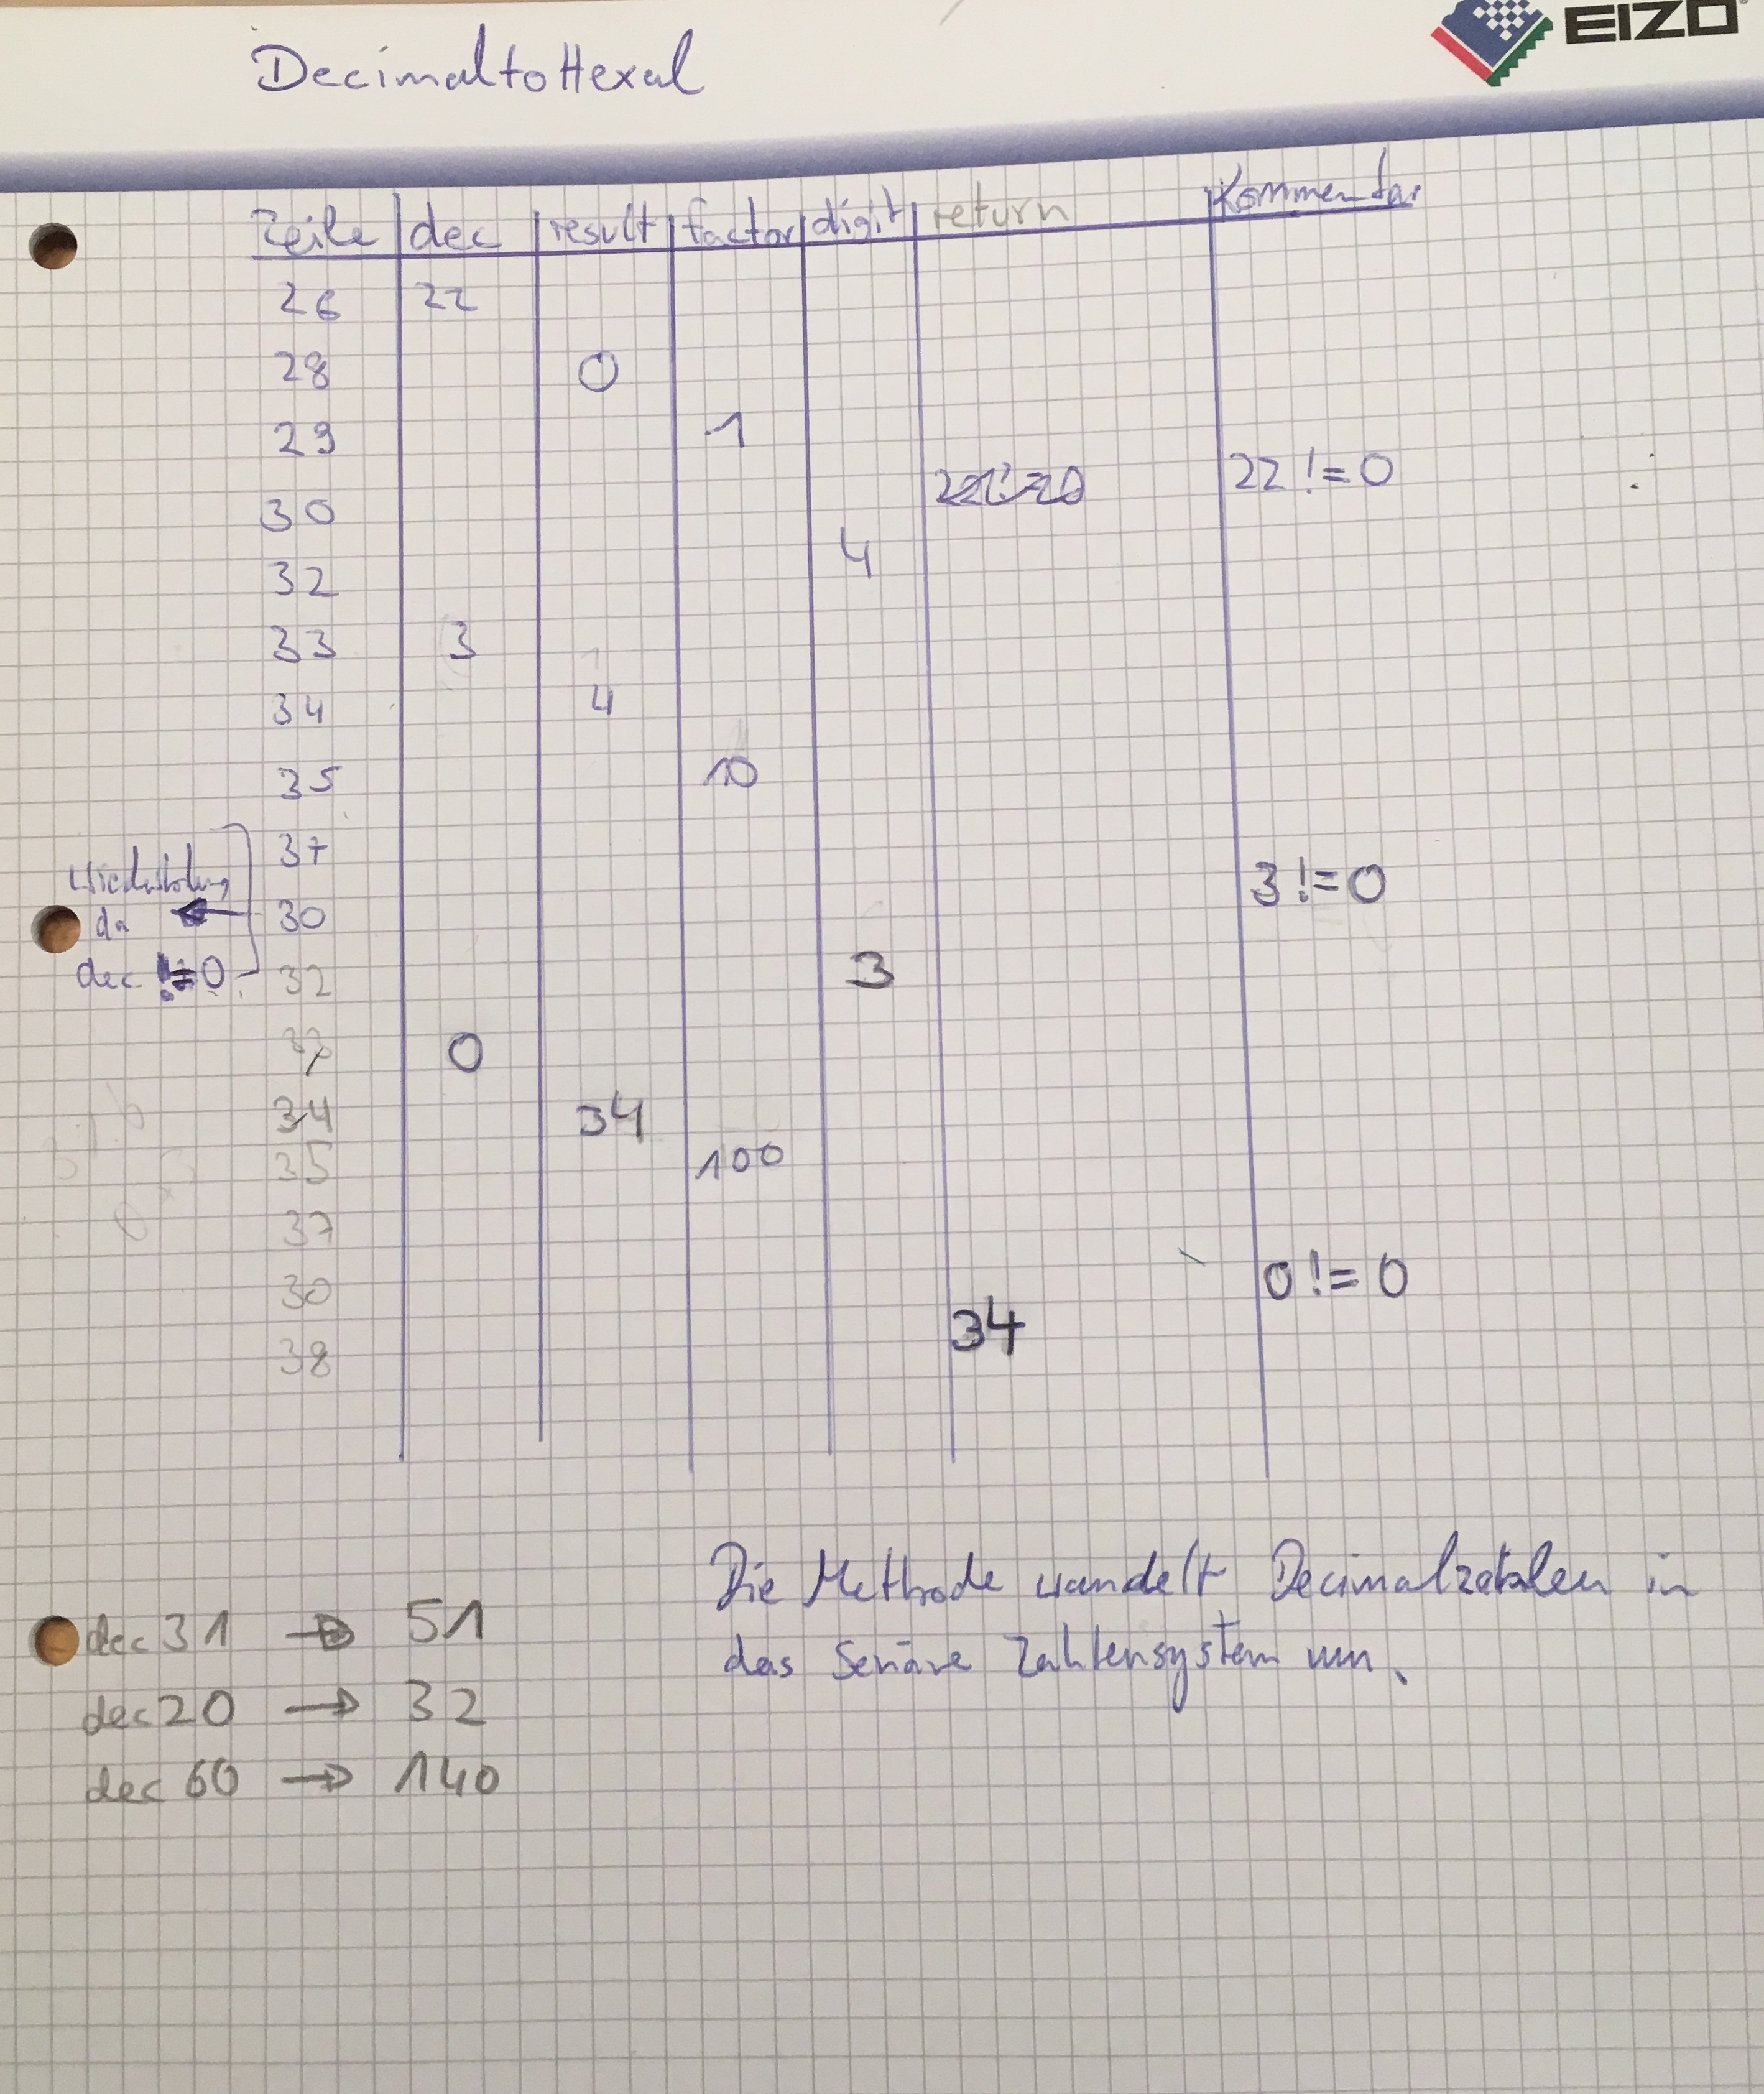 EIZO
DecimaltoHexal
Zeile dec result factor digit return Kommentar
26 22
28 0
29 1
30 22 != 0
32 4
33 3
34 4
35 10
37
30 3 != 0
32 3
33 0
34 34
35 100
37
30 0 != 0
38 34
Wiederholung
da
dec != 0
dec 31 → 51
dec 20 → 32
dec 60 → 140
Die Methode wandelt Decimalzahlen in
das Senäre Zahlensystem um.